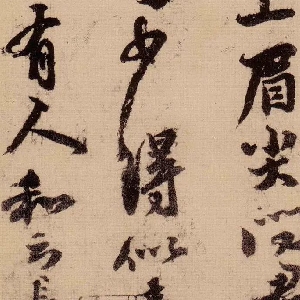 上眉尖
少得似
有人和云